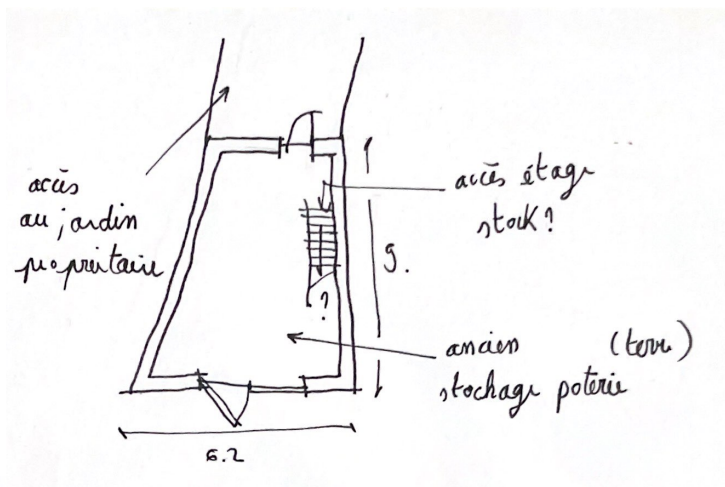 accès
au jardin
propriétaire
accès étage
stock ?
9.
?
ancien (terre)
stockage poterie
6.2